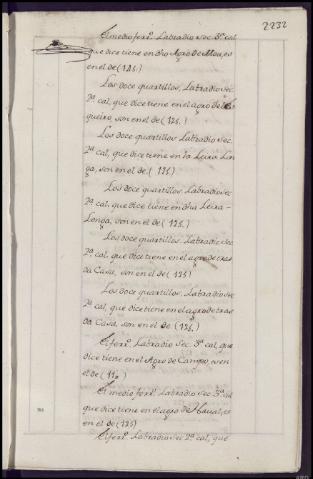 2232
El medio ferrº. Labradio Sec. 3ª. cal.
que dice tiene en dho Agro de Mou, es
en el de (12s.)
Los doce quartillos, Labradio Sec.
2ª. cal, que dice tiene en el agro de
queiro, son en el de (12s.)
Los doce quartillos Labradio sec.
2ª. cal, que dice tiene en la Leira Lon
ga, son en el de (12s.)
Los doce quartillos Labradio sec
2ª. cal, que dice tiene en dha Leira-
Longa, son en el de (12s.)
Los doce quartillos, Labradio Sec
2ª. cal, que dice tiene en el agro de tras
da Casa, son en el de (12s)
Los doce quartillos, Labradio sec
2ª. cal, que dice tiene en el agro de tras
da Casa, son en el de (12s.)
El ferrº. Labradio Sec. 3ª. cal, que
dice tiene en el Agro de Campo, es en
el de
El medio ferrº. Labradio Sec. 3ª. cal
que dice tiene en el agro de es
en el de (12s)
El ferrº. Labradio Sec 2ª. cal, que